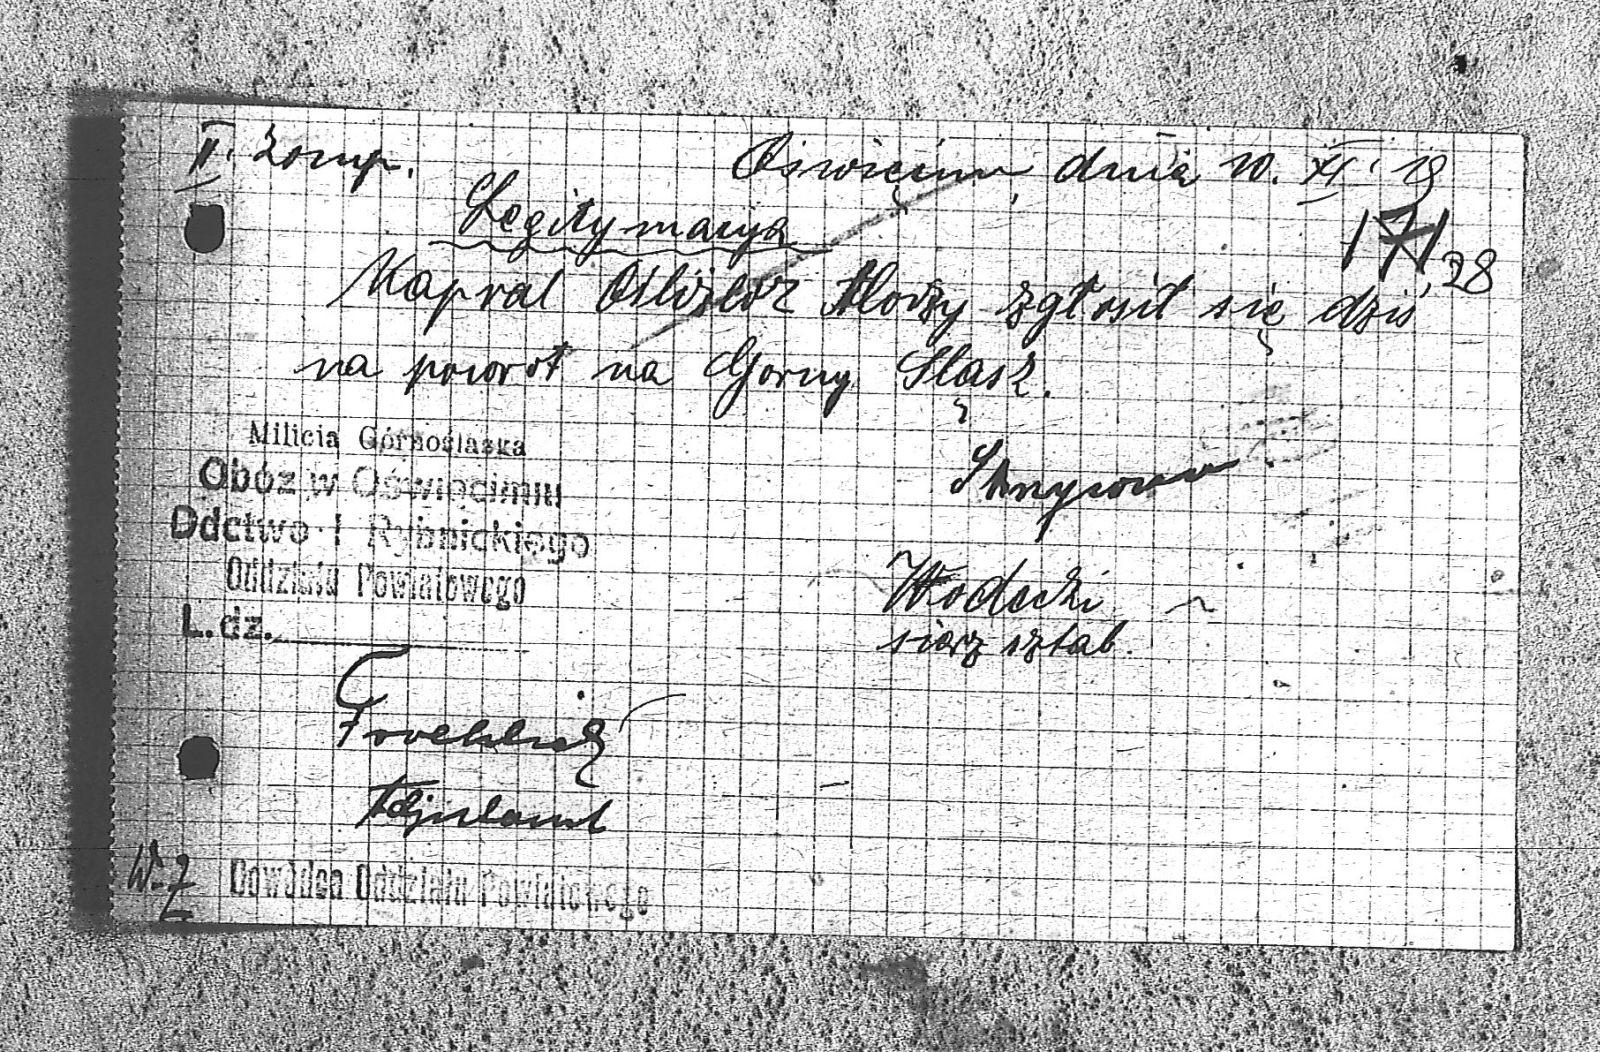 II. komp. Oświęcim, dnia 10. XI. 19
171, 28
Legitymacya
Kapral Oślizlok Alojzy zgłosił się dziś
na powrot na Gorny Sląsk.
Milicia Górnośląska
Obóz w Oświęcimiu
Ddctwo I Rybnickiego
Oddziału Powiatowego
L. dz.
Włodecki
sierz sztab.
Froehlich
Adjutant
W. z Dowódca Oddziału Powiatowego